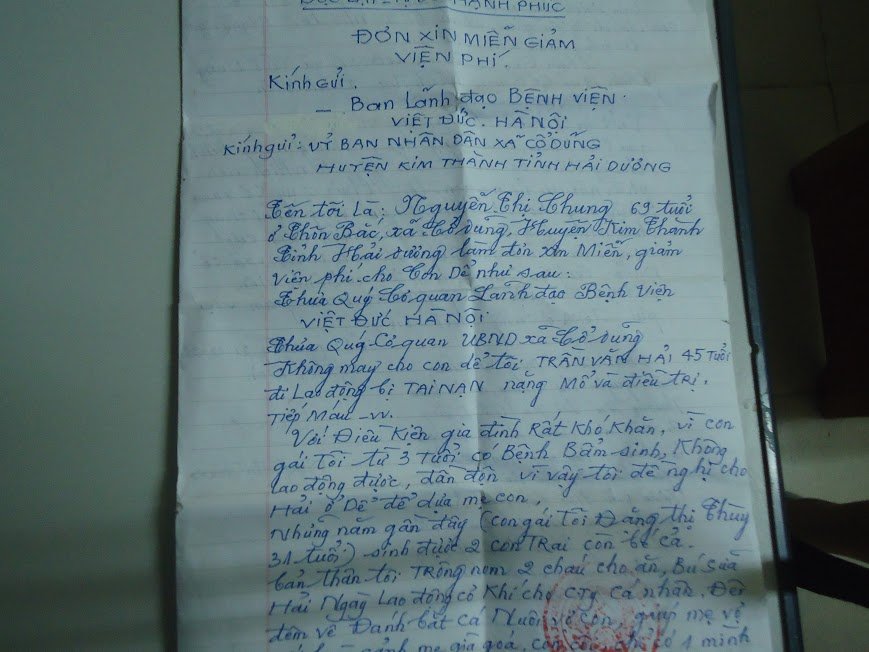 ĐỘC LẬP - TỰ DO HẠNH PHÚC
ĐƠN XIN MIỄN GIẢM
VIỆN PHÍ.
Kính GỬI.
- Ban Lãnh đạo BỆNH VIỆN.
VIỆT ĐỨC. HÀ NỘI
Kính gửi: UỶ BAN NHÂN DÂN XÃ CỔ DŨNG
HUYỆN KIM THÀNH TỈNH HẢI DƯƠNG
Tên tôi là: Nguyễn Thị Chung 69 tuổi
ở Thôn Bắc, xã Cổ Dũng, Huyện Kim Thành
Tỉnh Hải Dương làm đơn xin Miễn, giảm
viện phí cho Con Dể như sau:
Thưa Quý Cơ quan Lãnh đạo Bệnh Viện
VIỆT ĐỨC HÀ NỘI
Thưa Quý Cơ quan UBND xã Cổ Dũng
Không may cho con dể tôi TRẦN VĂN HẢI 45 TUỔI
đi Lao động bị TAI NẠN nặng Mổ và điều trị.
Tiếp Máu -vv.
Với Điều Kiện gia đình Rất Khó Khăn, vì con
gái Tôi từ 3 Tuổi có Bệnh Bẩm sinh, Không
lao động được, đần độn vì vậy tôi đề nghị cho
Hải ở Dể để dựa mẹ con.
Những năm gần đây (con gái Tôi Đặng thị Thùy
31 tuổi) sinh được 2 con TRai còn bé cả.
bản thân tôi TRông nom 2 cháu cho ăn, Bú sữa
Hải Ngày Lao động cơ Khí cho CTy cá nhân. Đến
đêm về Đánh bắt cá Nuôi vợ con, giúp mẹ vợ
cảnh mẹ già goá, con côi chỉ có 1 mình